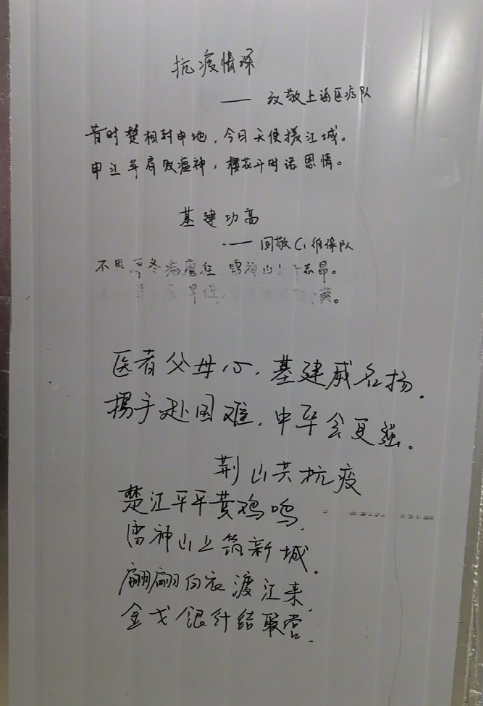 抗疫情深
—— 致敬上海医疗队
昔时楚相封申地,今日天使援江城。
申江羊肩败瘟神,樱花开时话恩情。
基建功高
—— 回敬C1维保队
不畏寒冬病魔狂 雷神山上志昂。
医者父母心,基建威名扬.
携手赴国难,中华会更强.
荆山共抗疫
楚江平平黄鸡鸣.
雷神山上筑新城.
翩翩白衣渡江来.
金戈银针结联营.